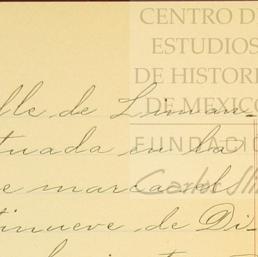 CENTRO D
ESTUDIOS
DE HISTORI
DE MEXICO
FUNDACIÓ
Carlos Sli
lle de Liman-
tuada en la
e marca el
tinueve de Di-